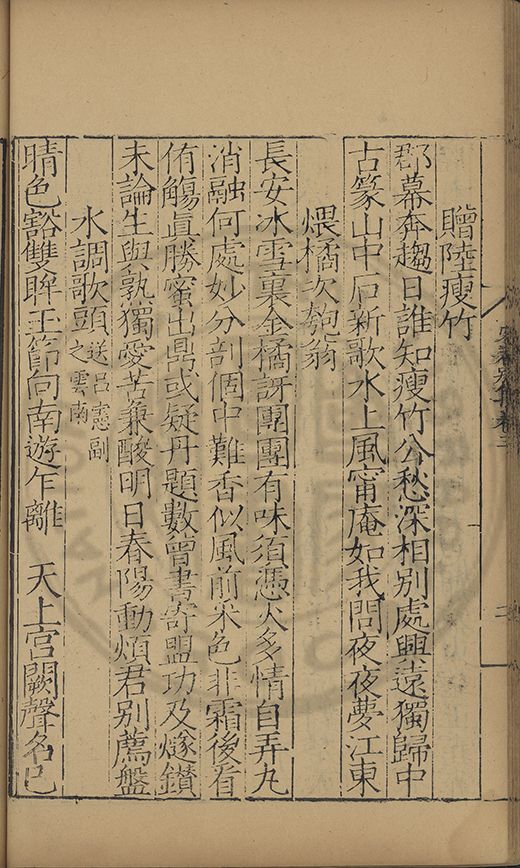 贈陸瘦竹
郡幕奔趨日誰知瘦竹公愁深相别處興遠獨歸中
古篆山中石新歌水上風甯庵如我問夜夜夢江東
煨橘次匏翁
長安冰雪裏金橘訝團團有味須憑火多情自弄丸
消融何處妙分剖個中難香似風前米色非霜後看
侑觴眞勝蜜出鼎或疑丹題數曾書寄盟功及燧鑽
未論生與孰獨愛苦兼酸明日春陽動煩君别薦盤
水調歌頭送呂憲副之雲南
晴色豁雙眸玉節向南遊乍離 天上宮闕聲名已
卷三
二